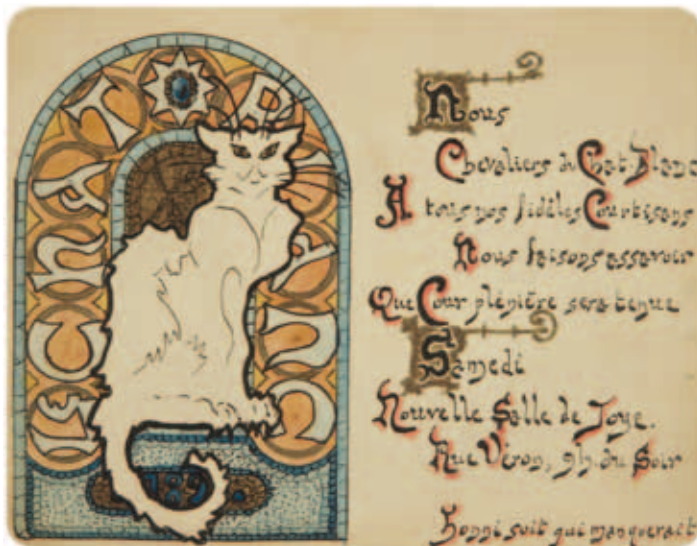 LE CHAT BLANC
189
Nous
Chevaliers du Chat-Blanc
A tous nos fidèles Courtisans
Nous faisons assavoir
Que Cour plénière sera tenue
Samedi
Nouvelle Salle de Joye.
Rue Véron, 9h. du Soir
Honni suit qui manquerait